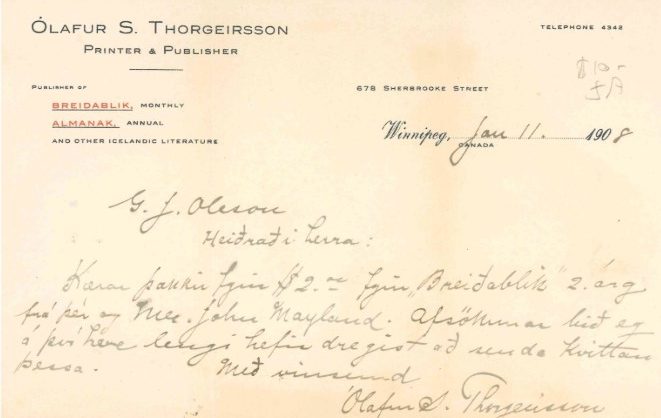 Ólafur S. Thorgeirsson
Printer & Publisher
Telephone 4342
Publisher of
Breidablik, Monthly
Almanak, Annual
and other Icelandic Literature
678 Sherbrooke Street
$10-
Winnipeg, Jan 11. 1908
Canada
G. J. Oleson
Heiðraði herra:
Kærar þakkir fyrir $2.00 fyrir „Breiðablik" 2. árg
frá þér og Mr. John Mayland. Afsökunar bið eg
á því hve lengi hefir dregist að senda kvittan
þessa. Með vinsemd
Ólafur S. Thorgeirsson